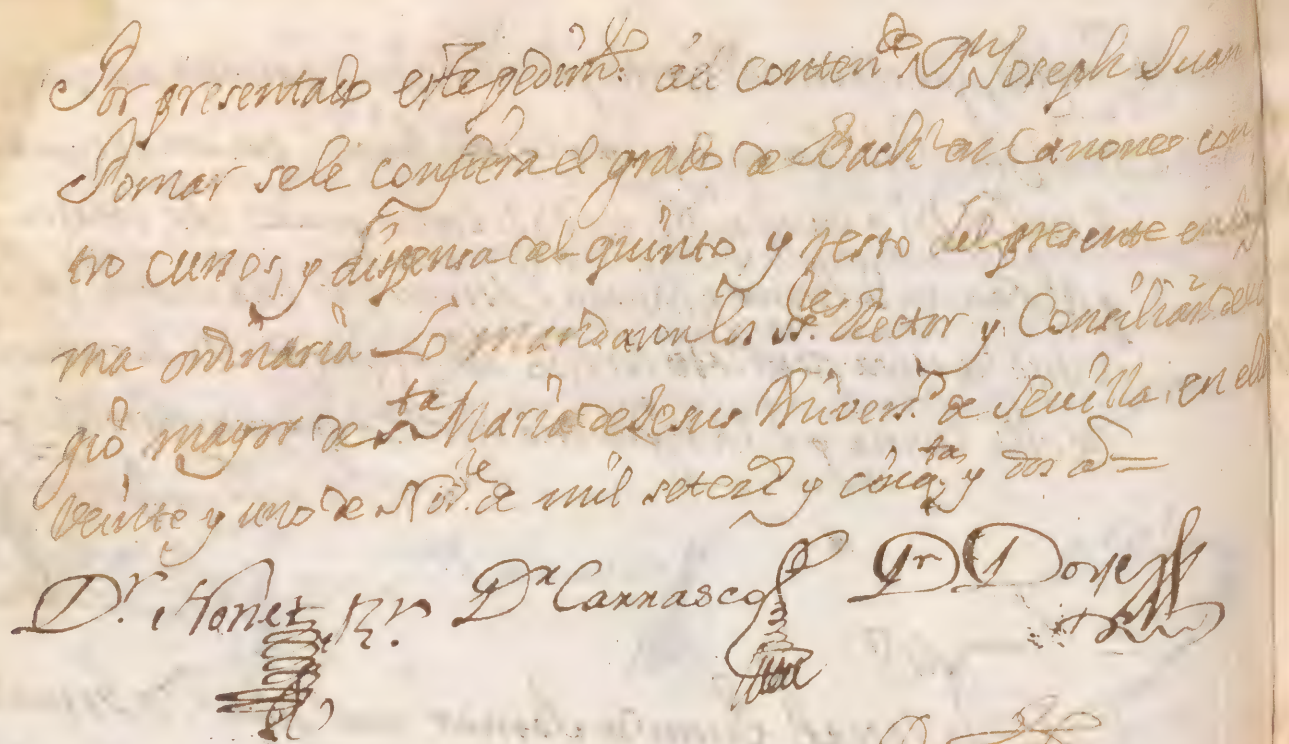 Por presentado este pedim.to al conten.do Dn Joseph Juan
Tomar sele confiera el grado de Bach.r en Canones con
tro cursos, y dispensa del quinto y resto del presente en la
ma ordinaria Lo mandaron los SS.res Rector y Consiliari
gio mayor de S.ta Maria de Jesus Univers.d de Sevilla, en ella
veinte y uno de Nov.re de mil setez.s y cinq.ta y dos a.s =
D.r R.r. Dr Carrasco Dr D